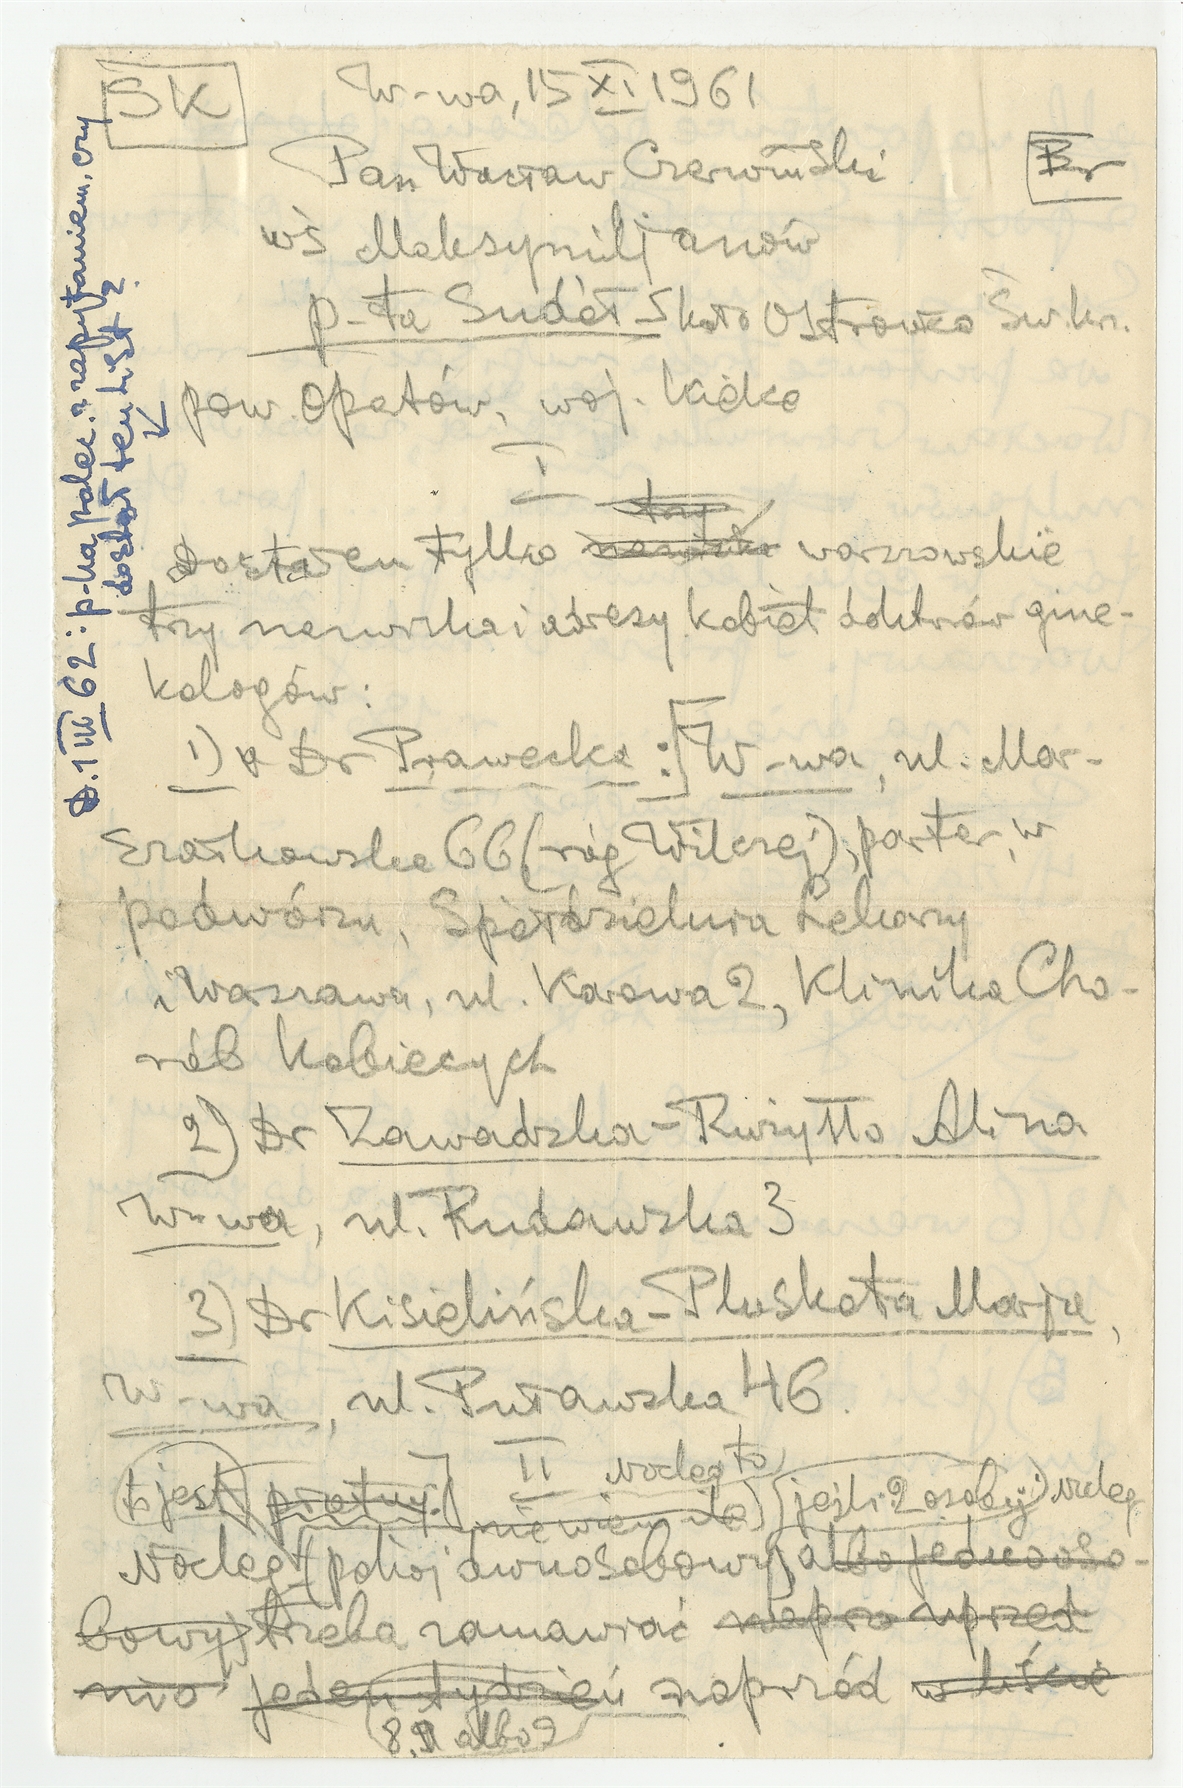 SK
W-wa, 15 XI 1961
Pan Wacław Czerwiński
Br
wś Maksymiljanów
p-ta Sudół koło Ostrowca Św.krz.
pow. Opatów, woj. Kielce
D. 1 III 62: p-ka polec. z zapytaniem, czy
dostał ten list?
I
trzy
Dostałem tylko nazwiska warszawskie
trzy nazwiska i adresy kobiet doktorów gine-
kologów:
1) Dr Prawecka :[W-wa, ul. Mar-
szałkowska 66 (róg Wilczej), parter, w
podwórzu, Spółdzielnia Lekarzy
i Warszawa, ul. Karowa 2, Klinika Cho-
rób Kobiecych
2) Dr Zawadzka-Kiżytto Alina
W-wa, ul. Rudawska 3
3) Dr Kisielińska-Pluskota Marja,
W-wa, ul. Puławska 46.
II nocleg to
to jest płatny.] nie wiem ile) (jeśli 2 osoby) nocleg
Nocleg (pokój dwuosobowy) albo jednooso-
bowy) trzeba zamawiać napro uprzed
nio jeden tydzień naprzód w liście
8, albo 9